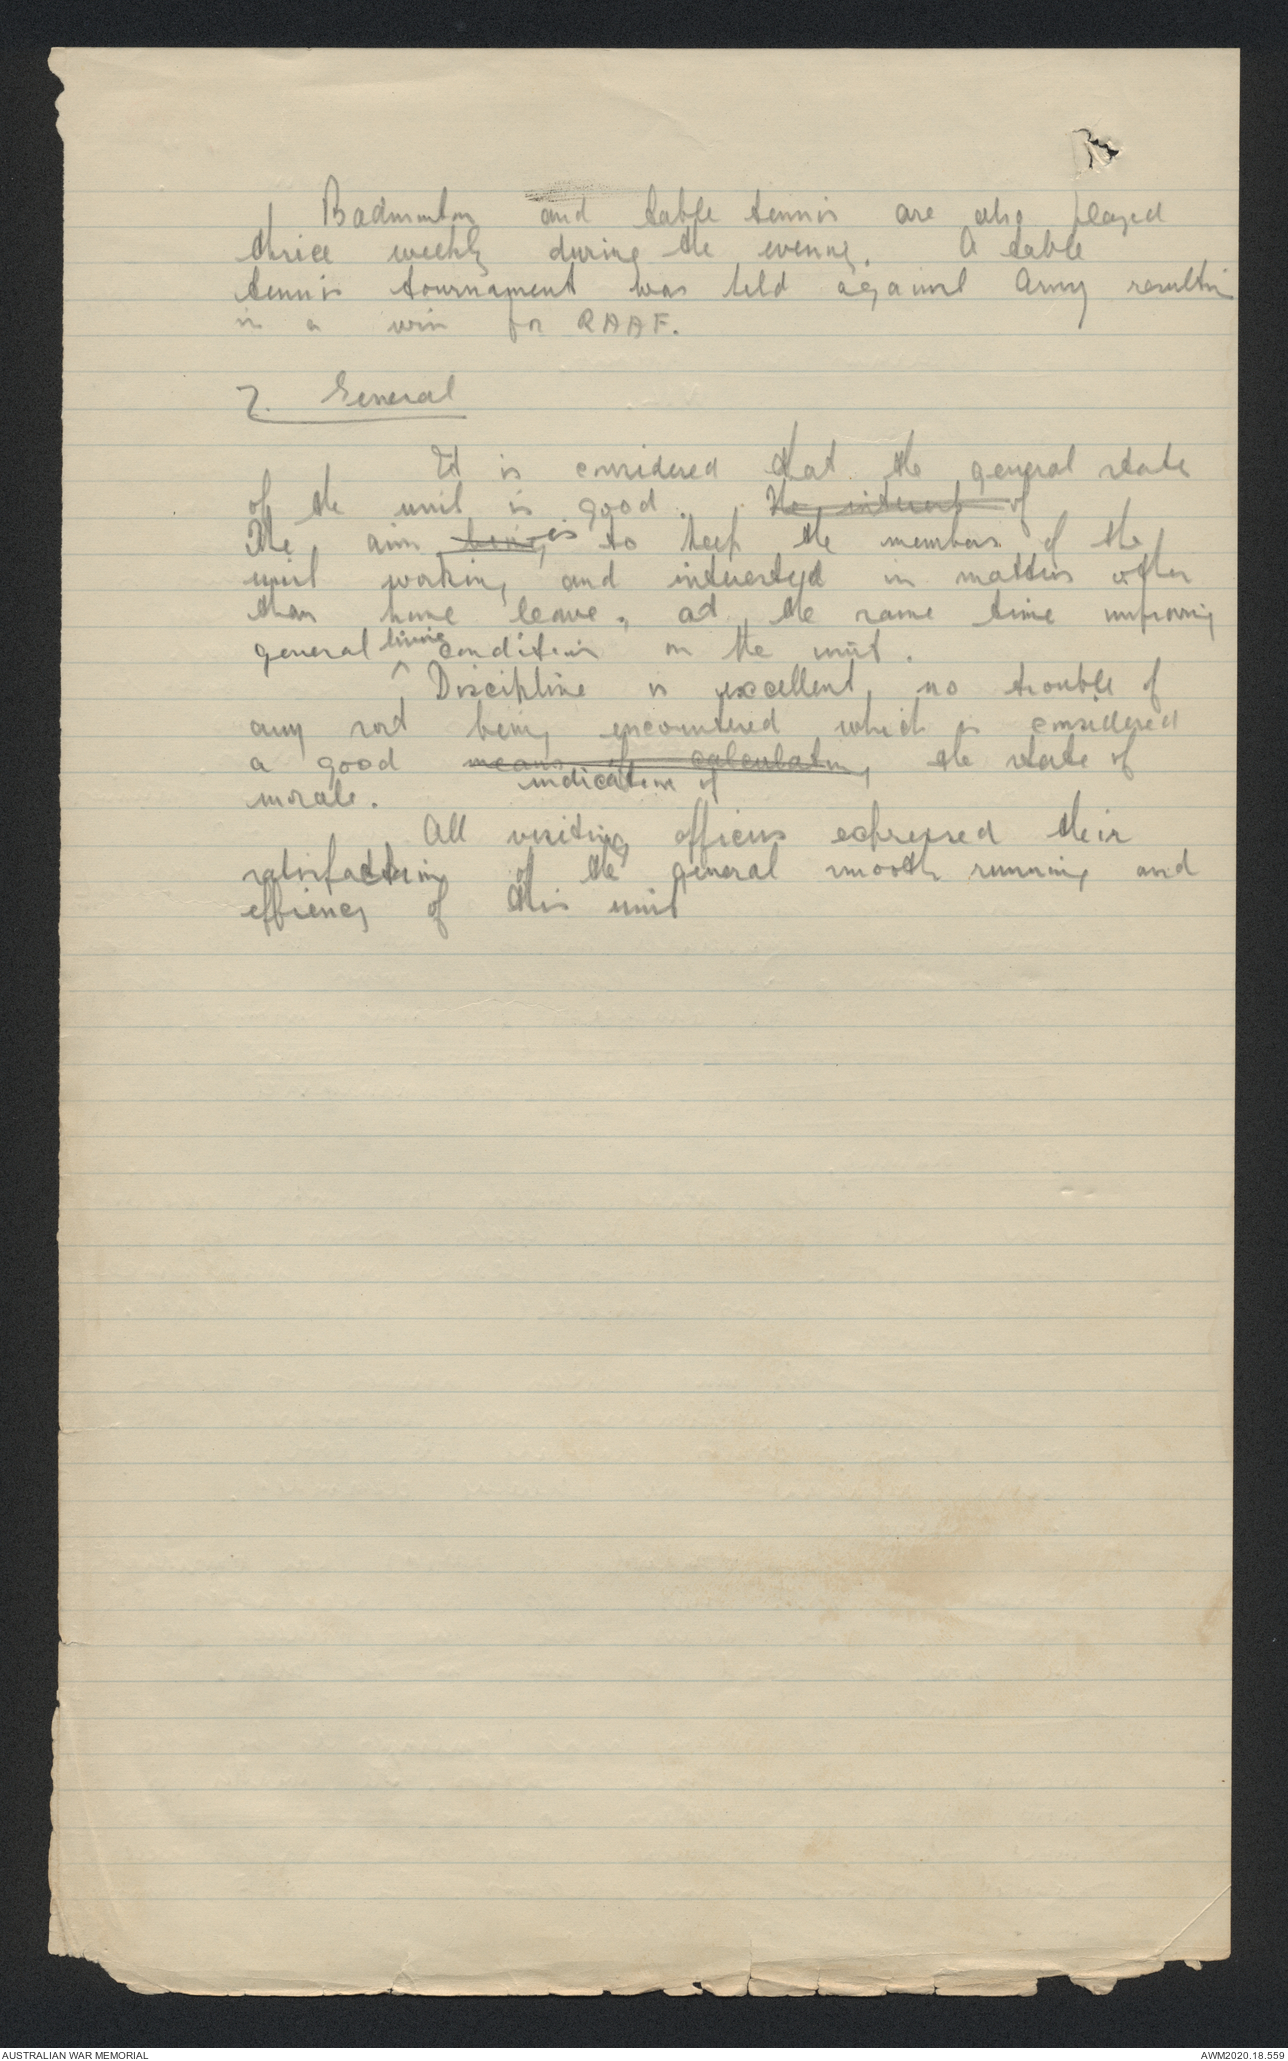 Badminton and table tennis are also played
thrice weekly during the evening. A table
tennis tournament was held against Army resulting
in a win for RAAF.
7. General
It is considered that the general state
of the unit is good. The interest of
The aim being is to keep the members of the
unit working and interested in matters other
than home leave, at the same time improving
general living condition on the unit.
Discipline is excellent, no trouble of
any sort being encountered which is considered
a good means of calculating the state of
indication of
morale.
All visiting officers expressed their
satisfaction of the general smooth running and
effiency of this unit
AUSTRALIAN WAR MEMORIAL
AWM2020.18.559